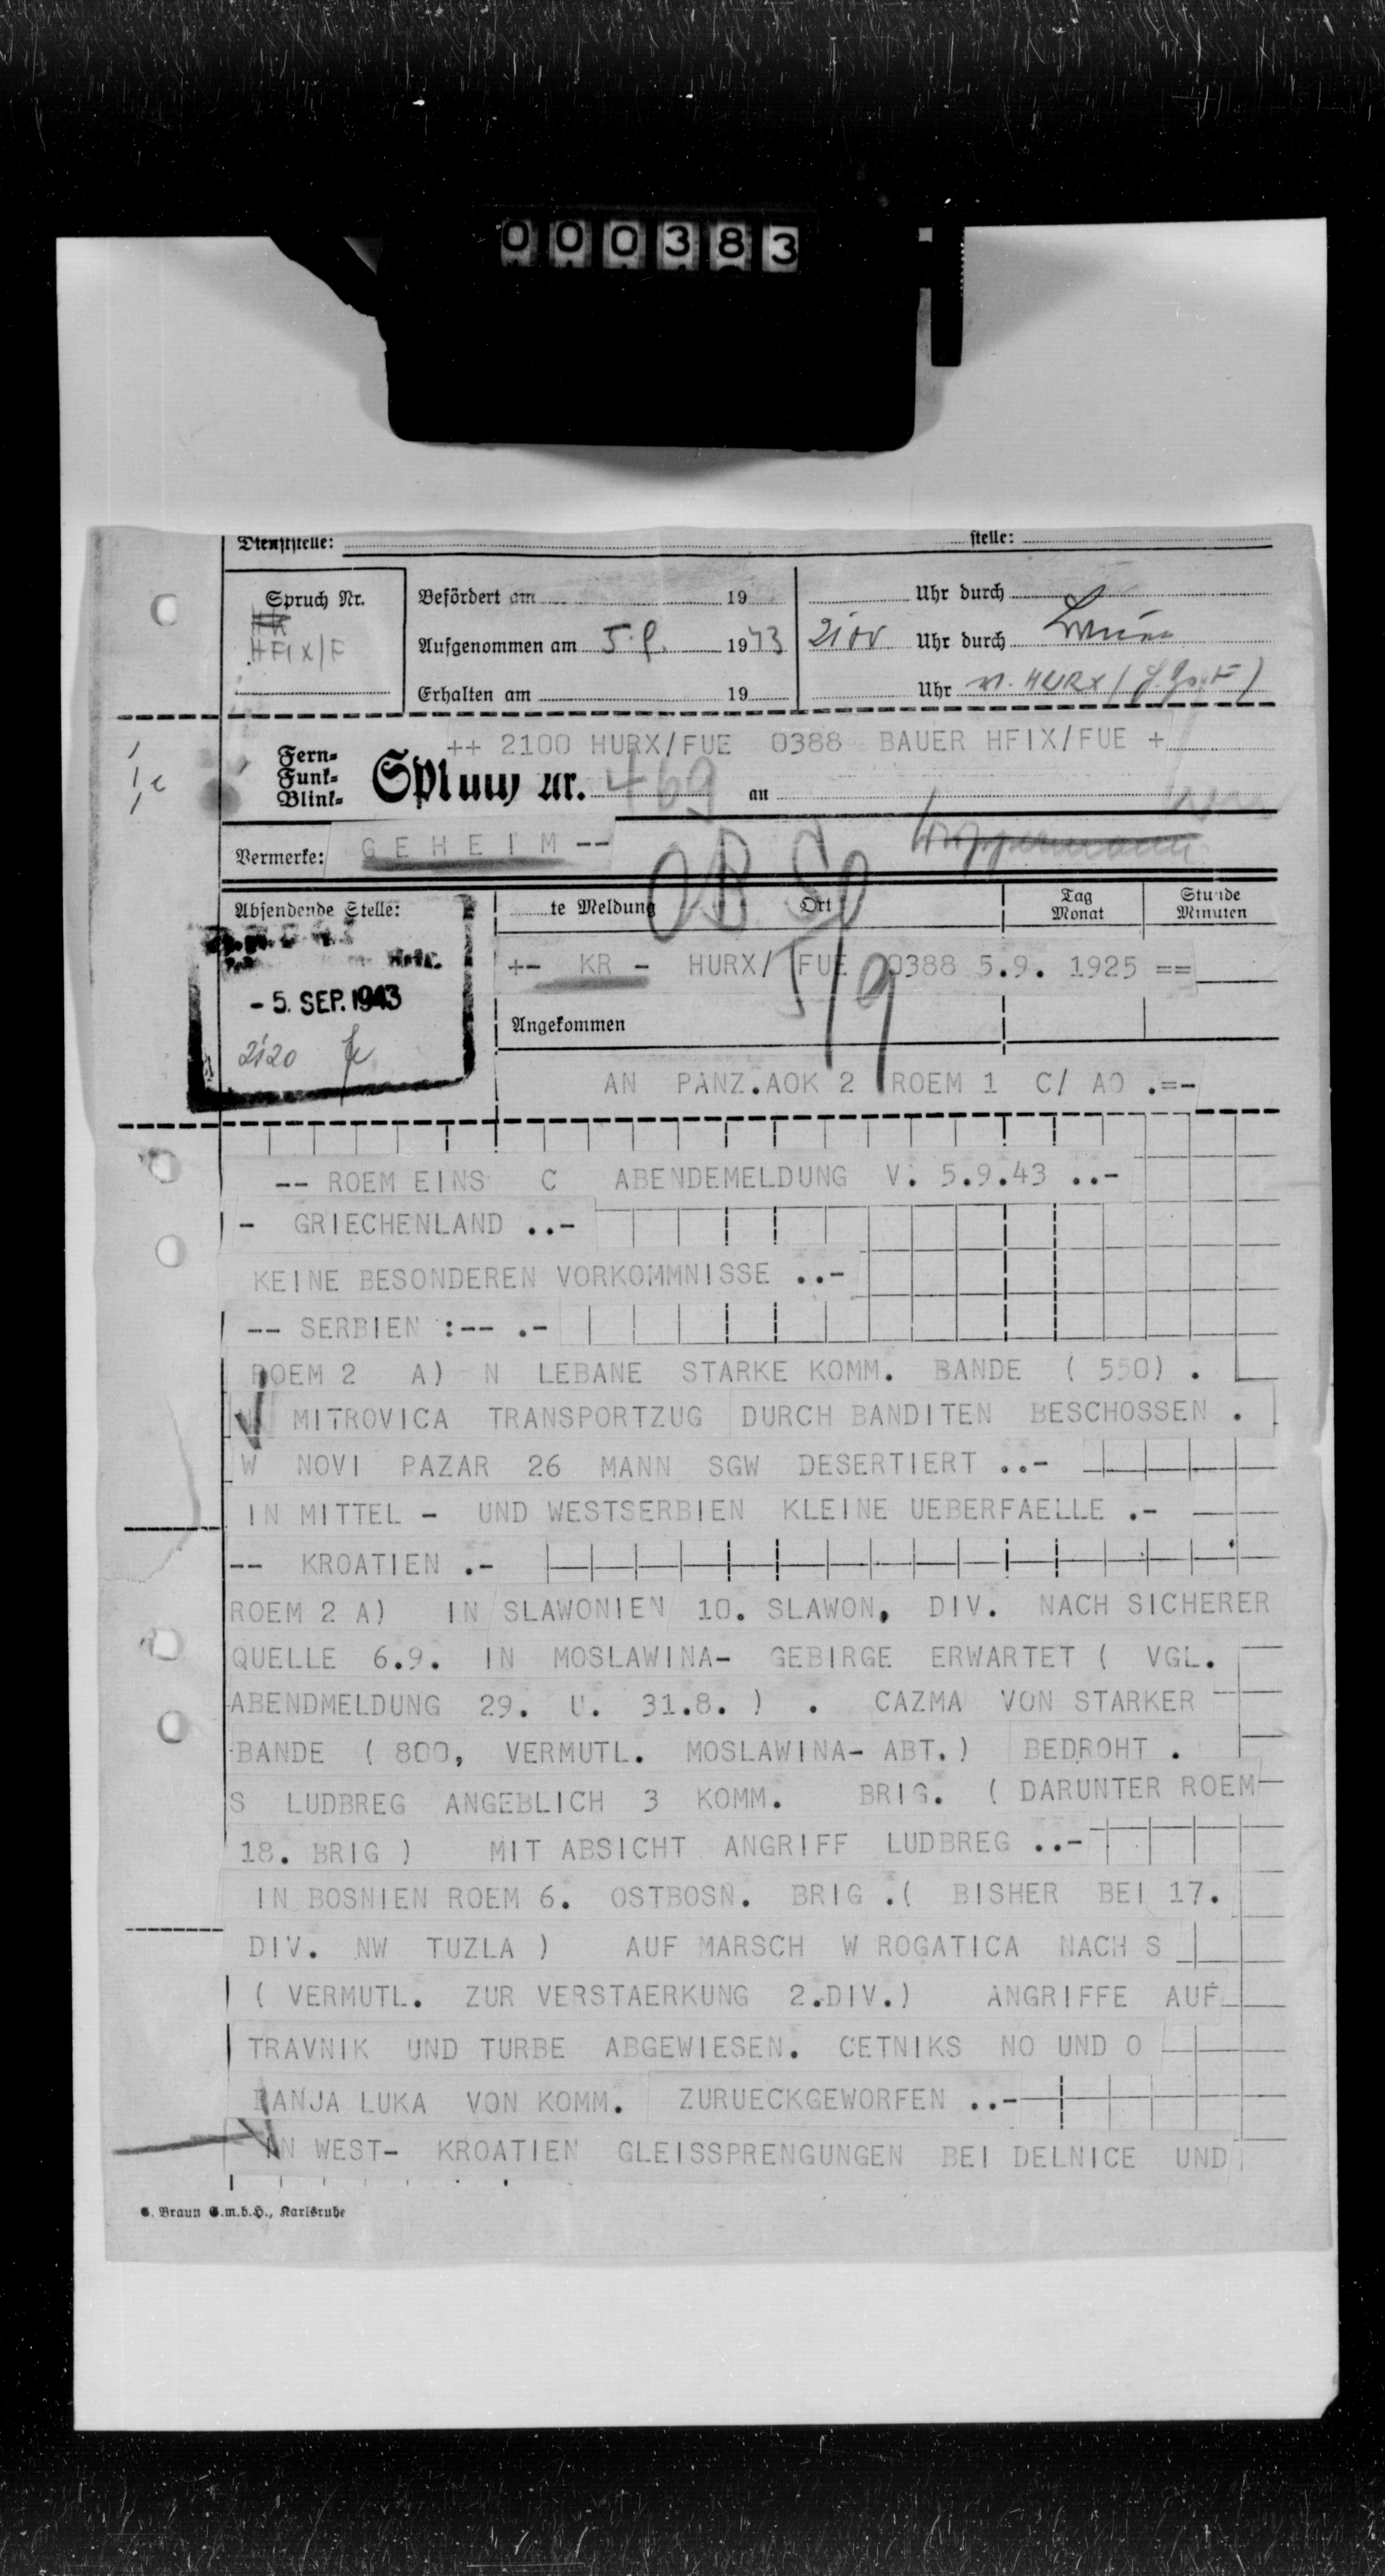 000383
Dienststelle: stelle:
Spruch Nr.
HFIX/F
Befördert am 19 Uhr durch
Aufgenommen am 5.9. 1943 2100 Uhr durch
Erhalten am 19 Uhr v. HURX/
++ 2100 HURX/FUE 0388 BAUER HFIX/FUE +
Fern-
Funk-
Blink-
Spruch Nr. 469 an
Vermerke: G E H E I M --
OB SO
5/9
Absendende Stelle:
te Meldung Ort Tag Monat Stunde Minuten
- 5. SEP. 1943
2120
+- KR - HURX/ FUE 0388 5.9. 1925 ==
Angekommen
AN PANZ.AOK 2 ROEM 1 C/ AO .=-
-- ROEM EINS C ABENDEMELDUNG V. 5.9.43 ..-
- GRIECHENLAND ..-
KEINE BESONDEREN VORKOMMNISSE ..-
-- SERBIEN :-- .-
ROEM 2 A) N LEBANE STARKE KOMM. BANDE ( 550) .
MITROVICA TRANSPORTZUG DURCH BANDITEN BESCHOSSEN .
W NOVI PAZAR 26 MANN SGW DESERTIERT ..-
IN MITTEL - UND WESTSERBIEN KLEINE UEBERFAELLE .-
-- KROATIEN .-
ROEM 2 A) IN SLAWONIEN 10. SLAWON, DIV. NACH SICHERER
QUELLE 6.9. IN MOSLAWINA- GEBIRGE ERWARTET ( VGL.
ABENDMELDUNG 29. U. 31.8. ) . CAZMA VON STARKER
BANDE ( 800, VERMUTL. MOSLAWINA- ABT.) BEDROHT .
S LUDBREG ANGEBLICH 3 KOMM. BRIG. ( DARUNTER ROEM
18. BRIG ) MIT ABSICHT ANGRIFF LUDBREG ..-
IN BOSNIEN ROEM 6. OSTBOSN. BRIG .( BISHER BEI 17.
DIV. NW TUZLA ) AUF MARSCH W ROGATICA NACH S
( VERMUTL. ZUR VERSTAERKUNG 2.DIV.) ANGRIFFE AUF
TRAVNIK UND TURBE ABGEWIESEN. CETNIKS NO UND O
BANJA LUKA VON KOMM. ZURUECKGEWORFEN ..-
IN WEST- KROATIEN GLEISSPRENGUNGEN BEI DELNICE UND
G. Braun G.m.b.H., Karlsruhe